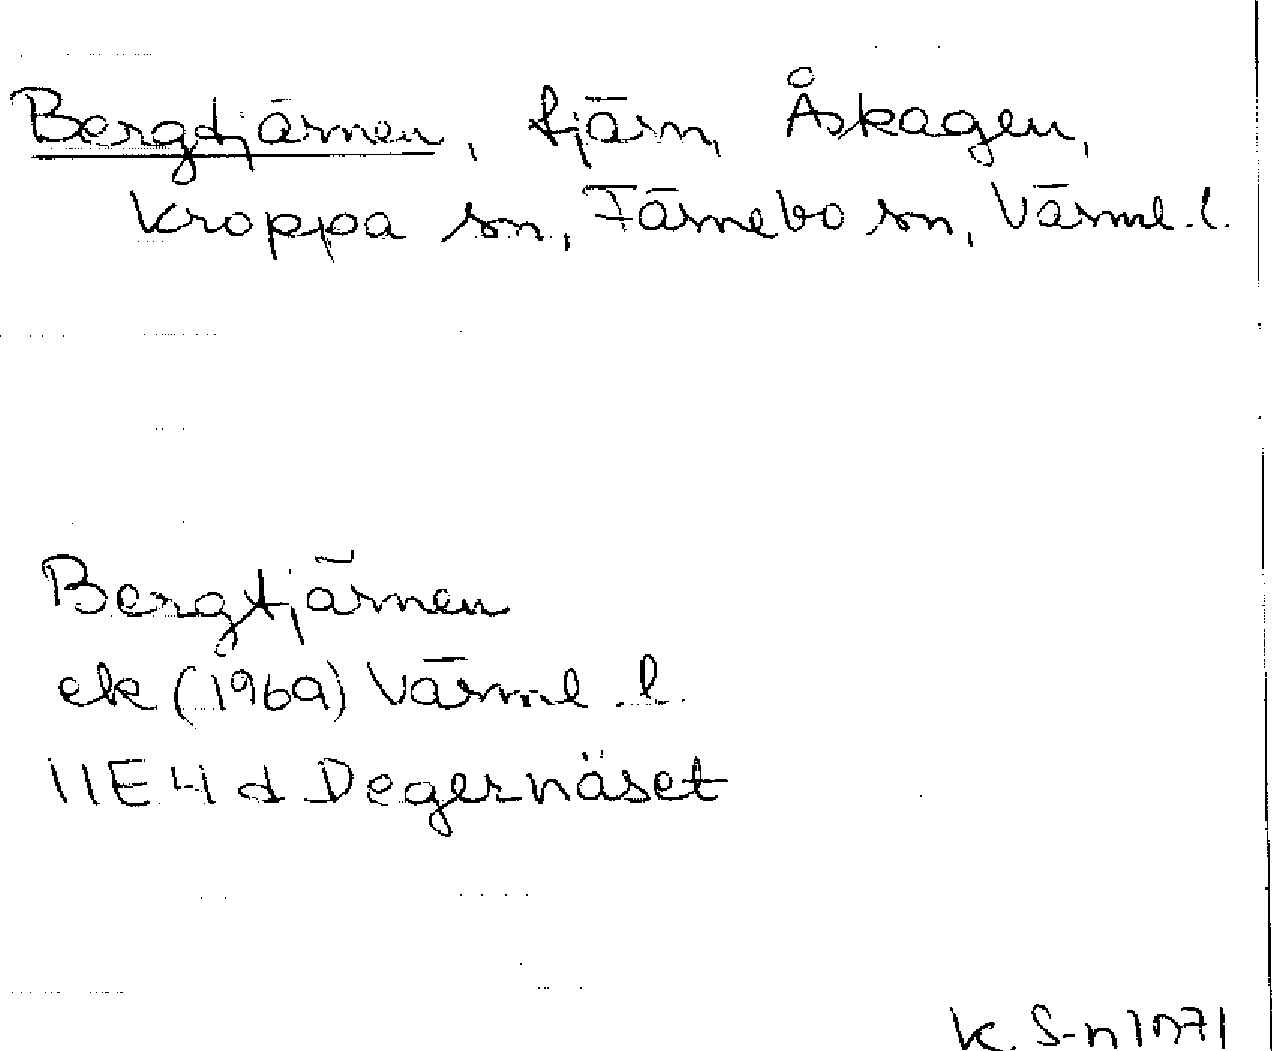 Bergtjärnen, tjärn, Åskagen,
Kroppa sn, Färnebo sn, Värml. l.
Bergtjärnen
ek (1969) Värml. l.
11E 4d Degernäset
K. S-n 1971